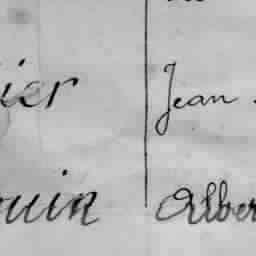 ier Jean
uin Alber